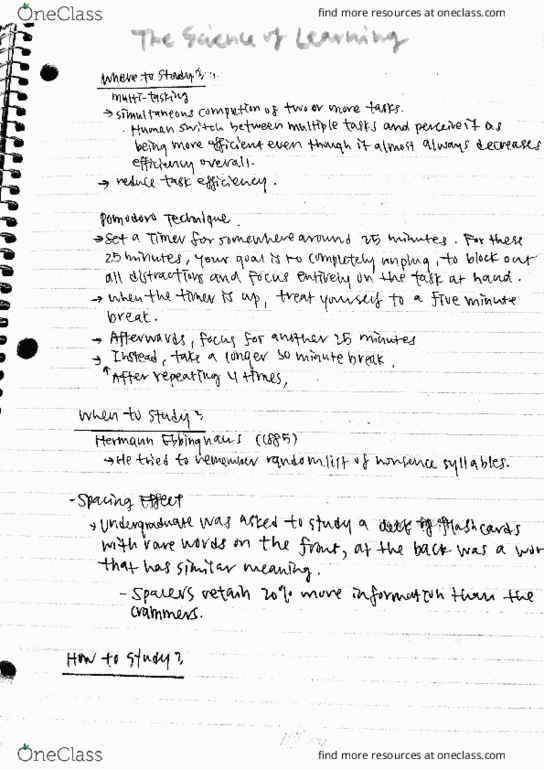 OneClass
find more resources at oneclass.com
The Science of Learning
Where to Study?
multi-tasking
→ simultaneous completion of two or more tasks.
· Human switch between multiple tasks and perceive it as
being more efficient even though it almost always decreases
efficiency overall.
→ reduce task efficiency.
Pomodoro Technique.
→ Set a Timer for somewhere around 25 minutes. For these
25 minutes, your goal is to completely unplug, to block out
all distractions and focus entirely on the task at hand.
→ when the timer is up, treat yourself to a five minute
break.
→ Afterwards, focus for another 25 minutes
→ Instead, take a longer 30 minute break.
↑ After repeating 4 times,
When to Study?
Hermann Ebbinghaus (1885)
→ He tried to remember random list of nonsence syllables.
- Spacing Effect
→ Undergraduate was asked to study a flashcards
with rare words on the front, at the back was a wor
that has similar meaning.
- Spacers retain 20% more information than the
crammers.
How to Study?
OneClass
find more resources at oneclass.com